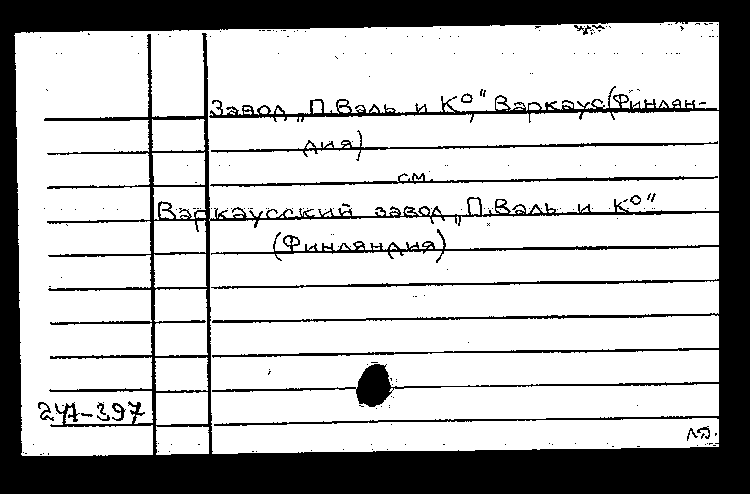 Завод „П. Валь и К°", Варкаус (Финлян-
дия)
см.
Варкаусский завод „П. Валь и К°"
(Финляндия)
247-397